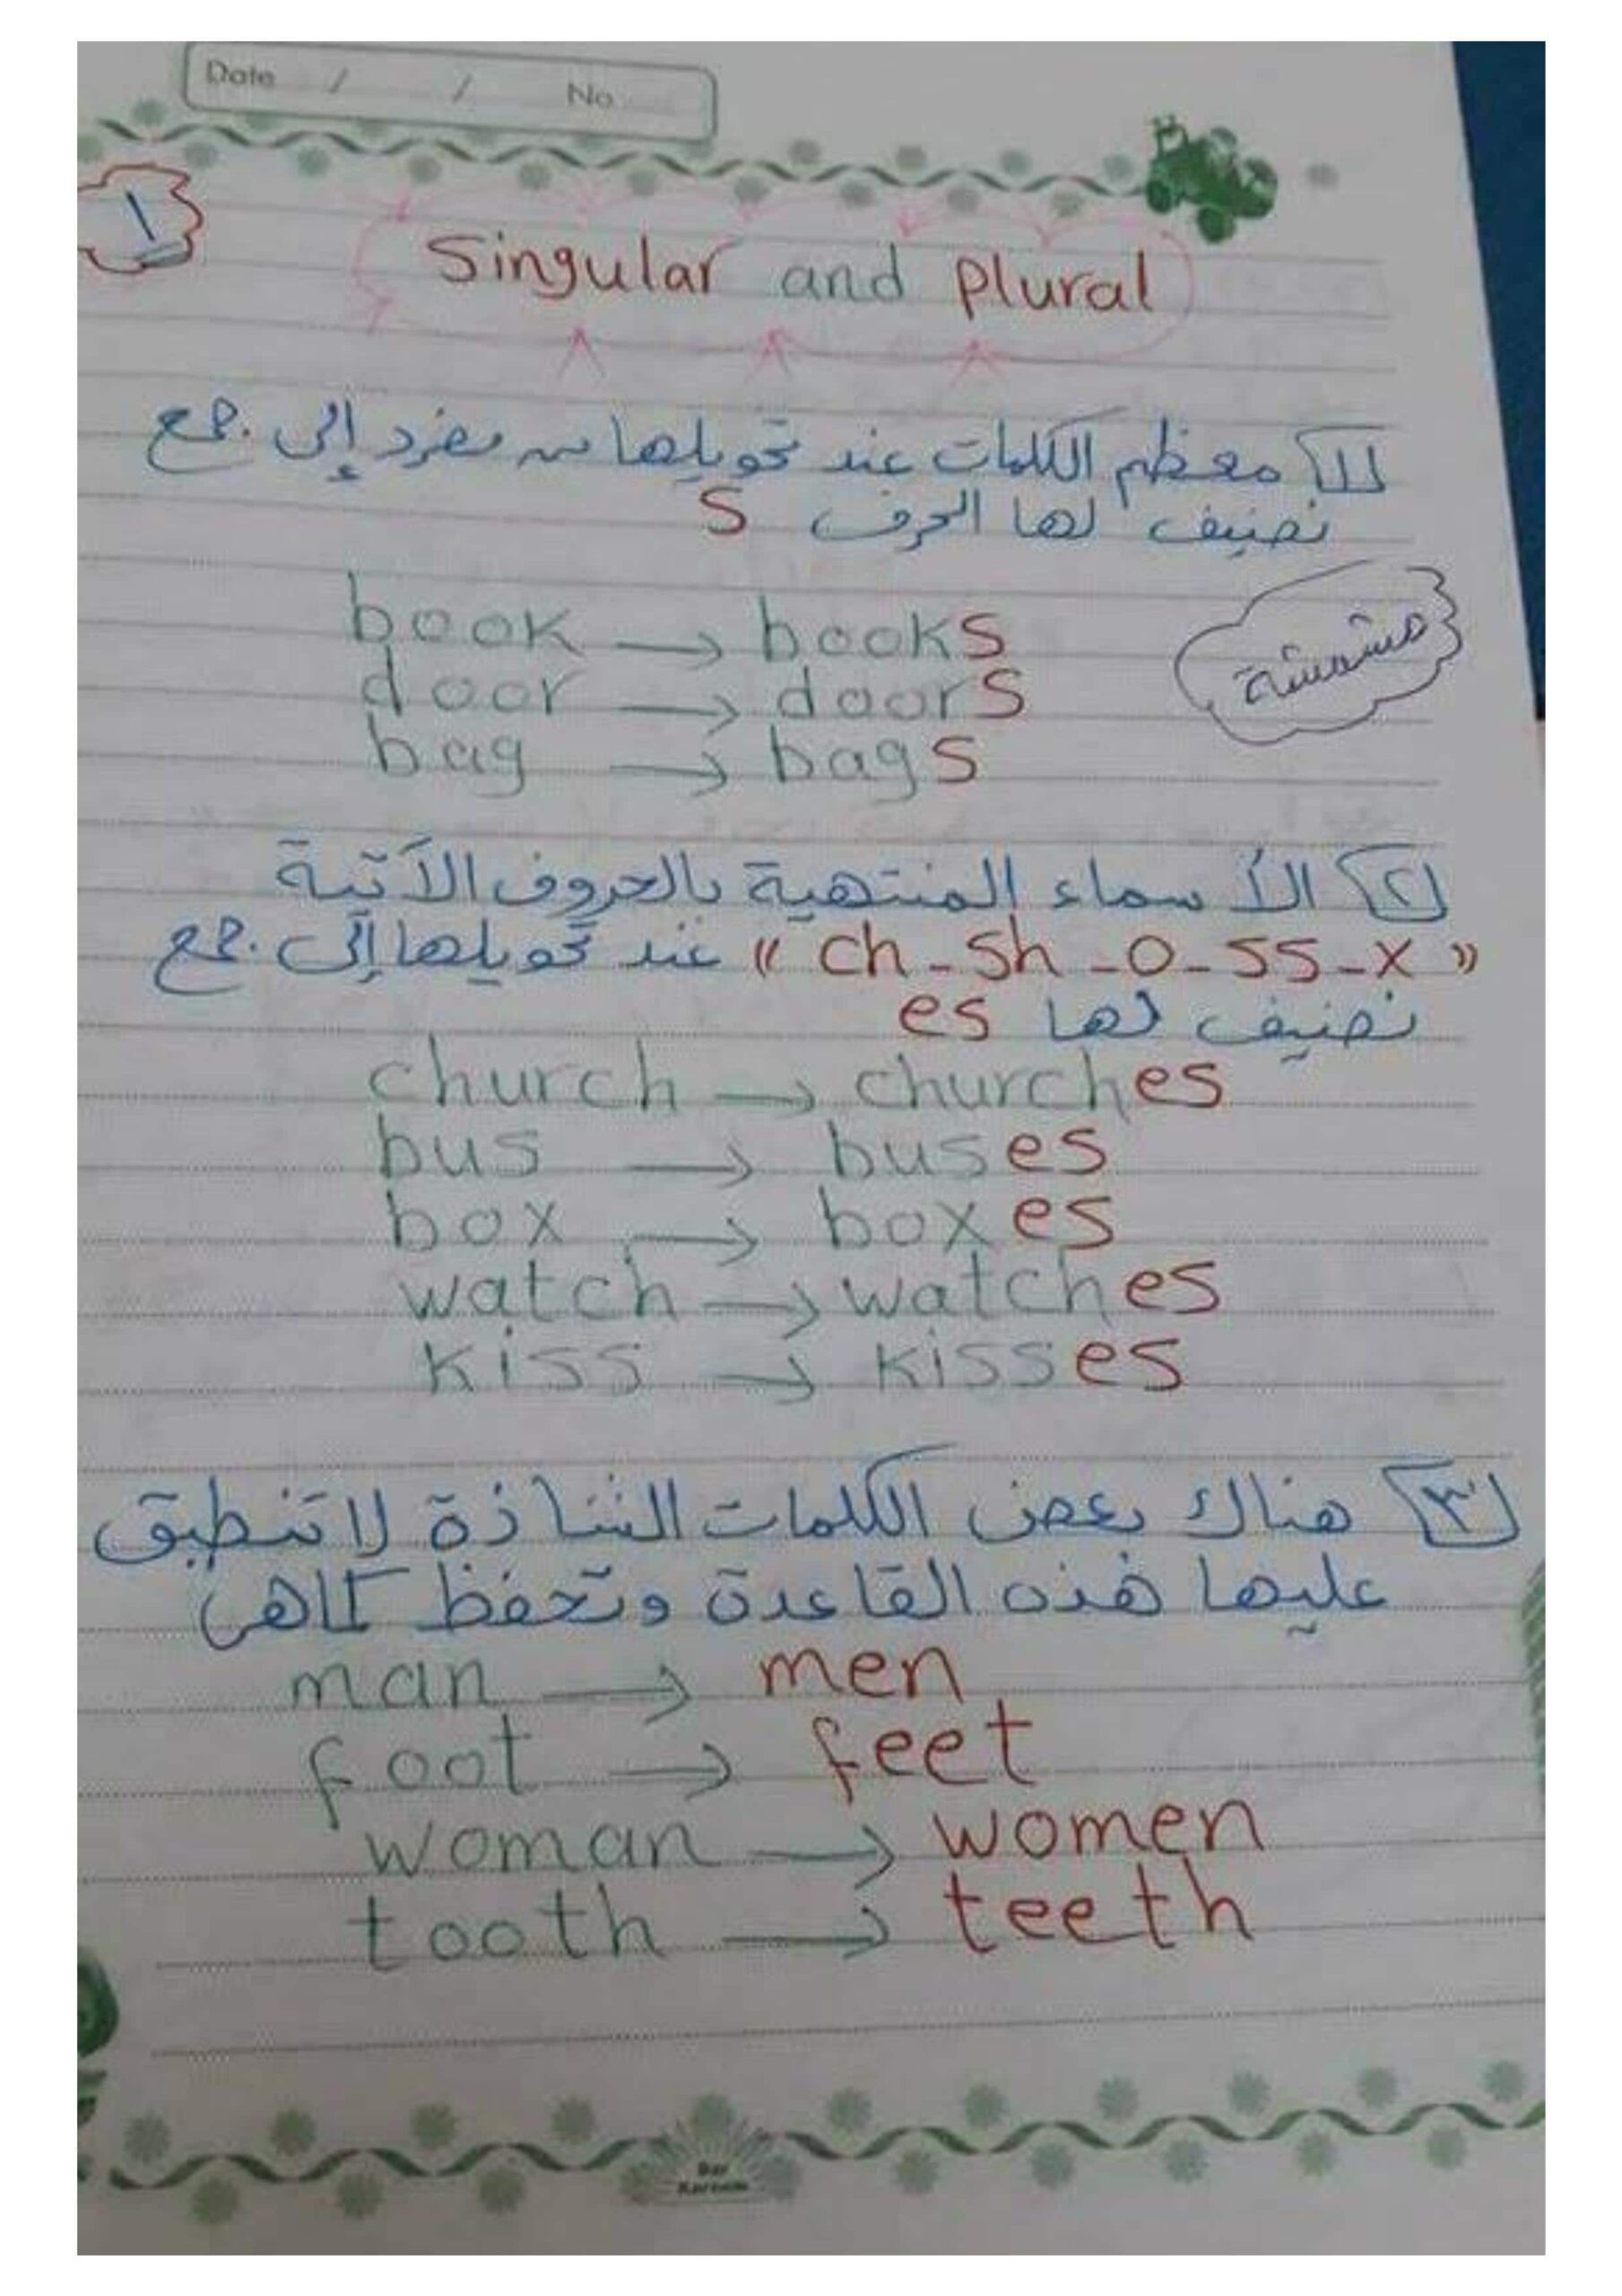 Date / / No
١
Singular and plural
١ معظم الكلمات عند تحويلها من مفرد إلى جمع
نضيف لها الحرف S
book → books
مشمشة
door → doors
bag → bags
٢ الأسماء المنتهية بالحروف الآتية
« ch - sh - o - ss - x » عند تحويلها إلى جمع
نضيف لها es
church → churches
bus → buses
box → boxes
watch → watches
kiss → kisses
٣ هناك بعض الكلمات الشاذة لا تنطبق
عليها هذه القاعدة وتحفظ كما هى
man → men
foot → feet
woman → women
tooth → teeth